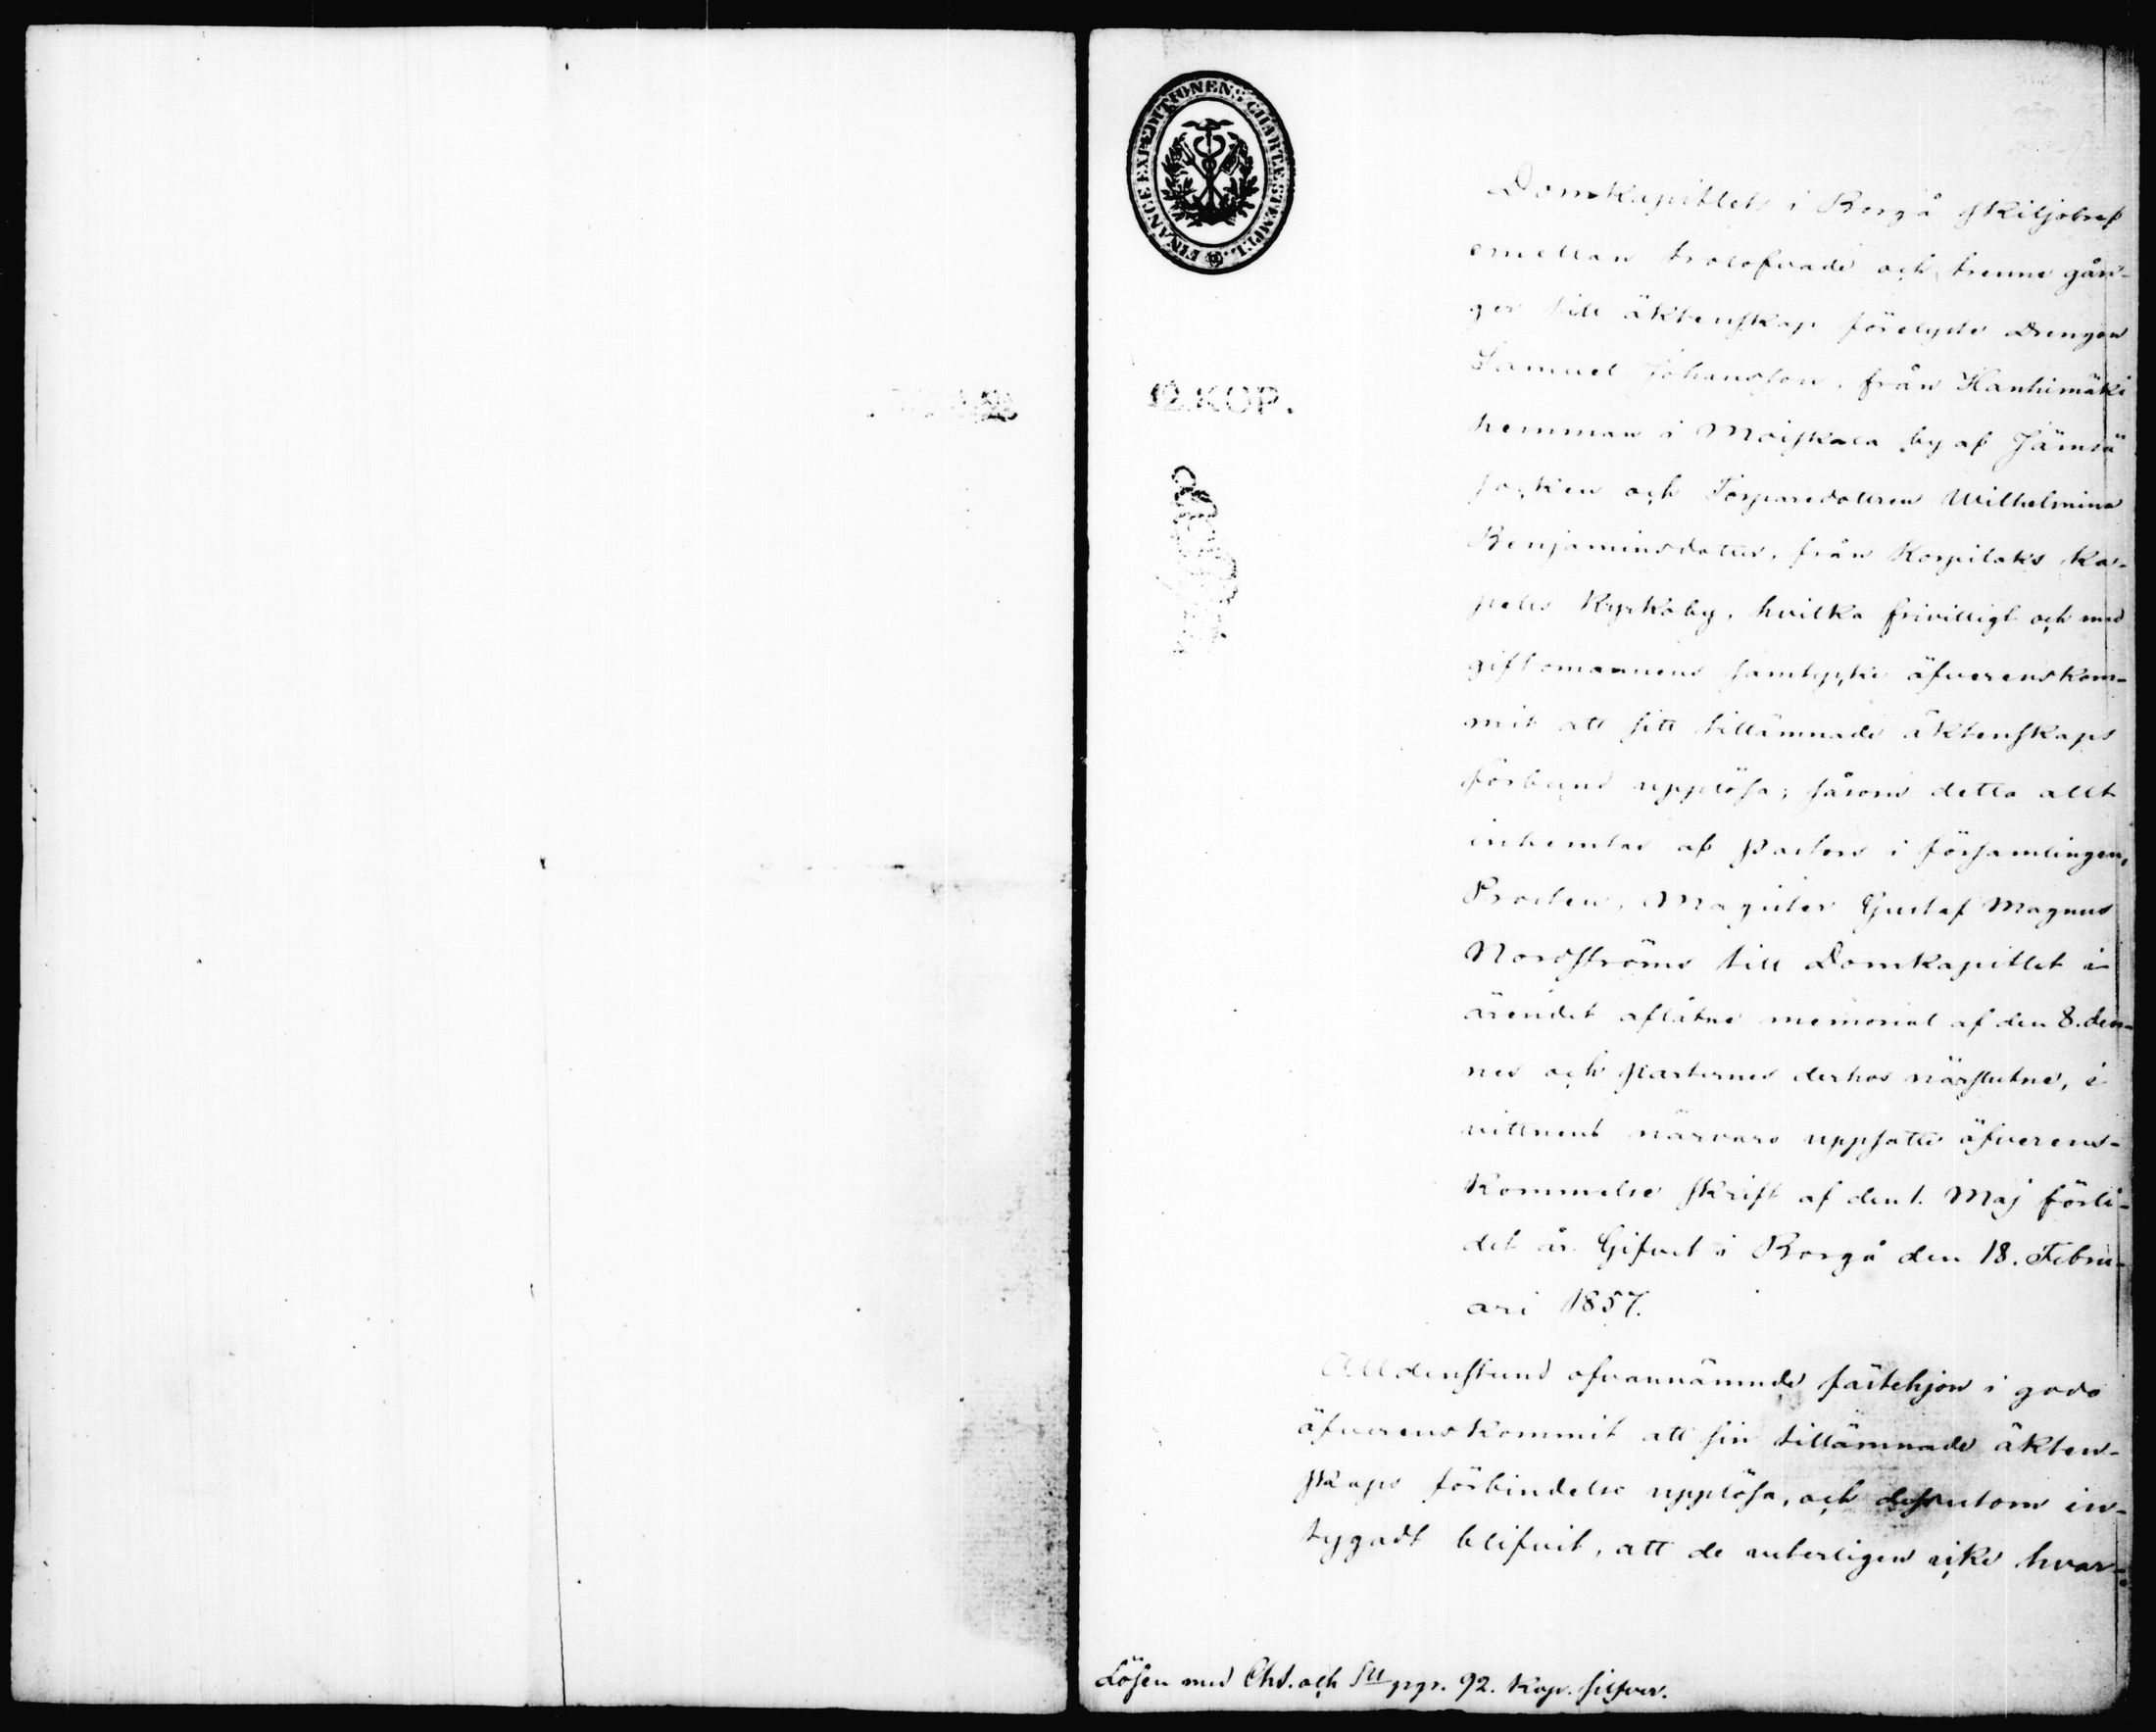 FINANCE EXPEDITIONENS CHARTÆ STEMPEL.
12. KOP.
Domkapitlets i Borgå skiljobref
emellan trolofvade och trenne gån-
ger till äktenskap förelyste Drengen
Samuel Johansson, från Hanhimäki
hemman i Moiskala by af Jämsä
socken och Torparedottren Wilhelmina
Benjaminsdotter, från Korpilaks Ka-
pells Kyrkoby, hvilka frivilligt och med
giftomannens samtycke äfverenskom-
mit att sitt tillämnade äktenskaps
förbund upplösa; såsom detta allt
inhemtas af Pastors i församlingen,
Prosten, Magister Gustaf Magnus
Nordströms till Domkapitlet i
ärendet aflåtne memorial af den 8. den-
nes och parternes derhos närslutne, i
vittnens närvaro uppsatte äfverens-
kommelse skrift af den 1. Maj förli-
det år. Gifvet i Borgå den 18. Febru-
ari 1857.
Alldenstund ofvannämnde fästehjon i godo
äfverenskommit att sin tillämnade äkten-
skaps förbindelse upplösa, och dessutom in-
tygadt blifvit, att de veterligen icke hvar-
Lösen med Chs. och pgr. 92. Kop. silfver.